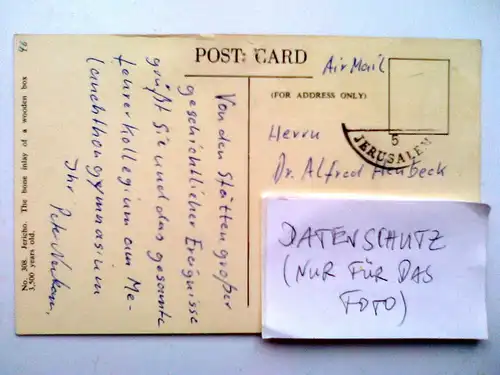 POST CARD
Air Mail
(FOR ADDRESS ONLY)
5
JERUSALEM
Herrn
Dr. Alfred Heubeck
DATENSCHUTZ
(NUR FÜR DAS
FOTO)
Von den Stätten großer
geschichtlicher Ereignisse
grüßt Sie und das gesamte
Lehrerkollegium am Me-
lanchthongymnasium
Ihr
No. 308. Jericho. The bone inlay of a wooden box
3,500 years old.